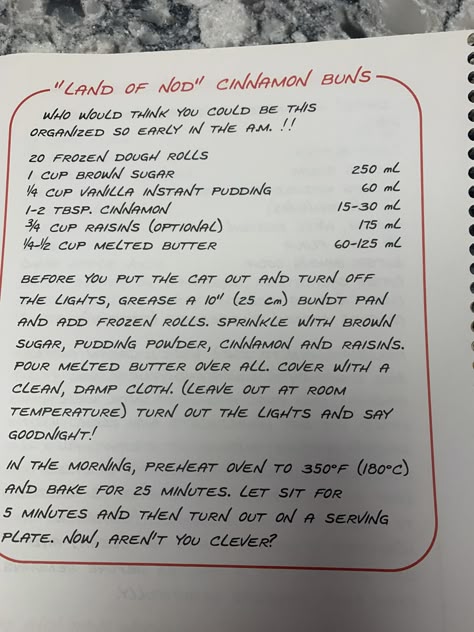 "LAND OF NOD" CINNAMON BUNS
WHO WOULD THINK YOU COULD BE THIS
ORGANIZED SO EARLY IN THE A.M. !!
20 FROZEN DOUGH ROLLS
1 CUP BROWN SUGAR 250 mL
¼ CUP VANILLA INSTANT PUDDING 60 mL
1-2 TBSP. CINNAMON 15-30 mL
¾ CUP RAISINS (OPTIONAL) 175 mL
¼-½ CUP MELTED BUTTER 60-125 mL
BEFORE YOU PUT THE CAT OUT AND TURN OFF
THE LIGHTS, GREASE A 10" (25 cm) BUNDT PAN
AND ADD FROZEN ROLLS. SPRINKLE WITH BROWN
SUGAR, PUDDING POWDER, CINNAMON AND RAISINS.
POUR MELTED BUTTER OVER ALL. COVER WITH A
CLEAN, DAMP CLOTH. (LEAVE OUT AT ROOM
TEMPERATURE) TURN OUT THE LIGHTS AND SAY
GOODNIGHT!
IN THE MORNING, PREHEAT OVEN TO 350°F (180°C)
AND BAKE FOR 25 MINUTES. LET SIT FOR
5 MINUTES AND THEN TURN OUT ON A SERVING
PLATE. NOW, AREN'T YOU CLEVER?